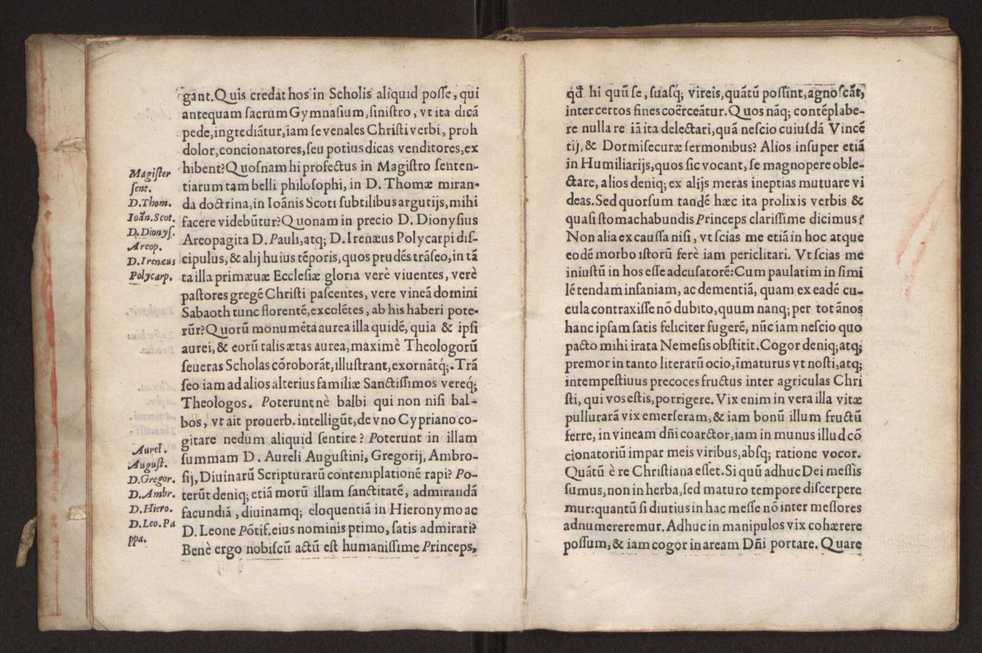 gant. Quis credat hos in Scholis aliquid posse, qui
antequam sacrum Gymnasium, sinistro, vt ita dicã
pede, ingrediãtur, iam se venales Christi verbi, proh
dolor, concionatores, seu potius dicas venditores, ex
hibent? Quosnam hi profectus in Magistro senten-
tiarum tam belli philosophi, in D. Thomæ miran-
da doctrina, in Ioãnis Scoti subtilibus argutijs, mihi
facere videbũtur? Quonam in precio D. Dionysius
Areopagita D. Pauli, atq; D. Irenæus Polycarpi dis-
cipulus, & alij huius tẽporis, quos prudẽs trãseo, in tã
ta illa primæuæ Ecclesiæ gloria verè viuentes, verè
pastores gregẽ Christi pascentes, vere vineã domini
Sabaoth tunc florentẽ, excolẽtes, ab his haberi pote-
rũt? Quorũ monumẽta aurea illa quidẽ, quia & ipsi
aurei, & eorũ talis ætas aurea, maximè Theologorũ
seueras Scholas cõroborãt, illustrant, exornãtq́;. Trã
seo iam ad alios alterius familiæ Sanctissimos vereq́;
Theologos. Poterunt nè balbi qui non nisi bal-
bos, vt ait prouerb. intelligũt, de vno Cypriano co-
gitare nedum aliquid sentire? Poterunt in illam
summam D. Aureli Augustini, Gregorij, Ambro-
sij, Diuinarũ Scripturarũ contemplationẽ rapi? Po-
terũt deniq; etiã morũ illam sanctitatẽ, admirandã
facundiã, diuinamq; eloquentiã in Hieronymo ac
D. Leone Põtif. eius nominis primo, satis admirari?
Benè ergo nobiscũ actũ est humanissime Princeps,
Magister
sent.
D. Thom.
Ioãn. Scot.
D. Dionys.
Areop.
D. Ireneus
Polycarp.
Aurel.
August.
D. Gregor.
D. Ambr.
D. Hiero.
D. Leo. Pa
ppa.
qđ hi quũ se, suasq́; vireis, quãtũ possint, agnoscãt,
inter certos fines coërceãtur. Quos nãq; contẽplabe-
re nulla re iã ita delectari, quã nescio cuiusdã Vincẽ
tij, & Dormisecuræ sermonibus? Alios insuper etiã
in Humiliarijs, quos sic vocant, se magnopere oble-
ctare, alios deniq; ex alijs meras ineptias mutuare vi
deas. Sed quorsum tandẽ hæc ita prolixis verbis &
quasi stomachabundis Princeps clarissime dicimus?
Non alia ex caussa nisi, vt scias me etiã in hoc atque
eodẽ morbo istorũ ferè iam periclitari. Vt scias me
iniustũ in hos esse adcusatorẽ: Cum paulatim in simi
lẽ tendam insaniam, ac dementiã, quam ex eadẽ cu-
cula contraxisse nõ dubito, quum nanq; per tot ãnos
hanc ipsam satis feliciter fugerẽ, nũc iam nescio quo
pacto mihi irata Nemesis obstitit. Cogor deniq; atq;
premor in tanto literarũ ocio, ĩmaturus vt nosti, atq;
intempestiuus precoces fructus inter agriculas Chri
sti, qui vos estis, porrigere. Vix enim in vera illa vitæ
pullurarã vix emerseram, & iam bonũ illum fructũ
ferre, in vineam dñi coarctor, iam in munus illud cõ
cionatoriũ impar meis viribus, absq; ratione vocor.
Quãtũ è re Christiana esset. Si quũ adhuc Dei messis
sumus, non in herba, sed maturo tempore discerpere
mur: quantũ si diutius in hac messe nõ inter messores
adnumereremur. Adhuc in manipulos vix cohærere
possum, & iam cogor in aream Dñi portare. Quare